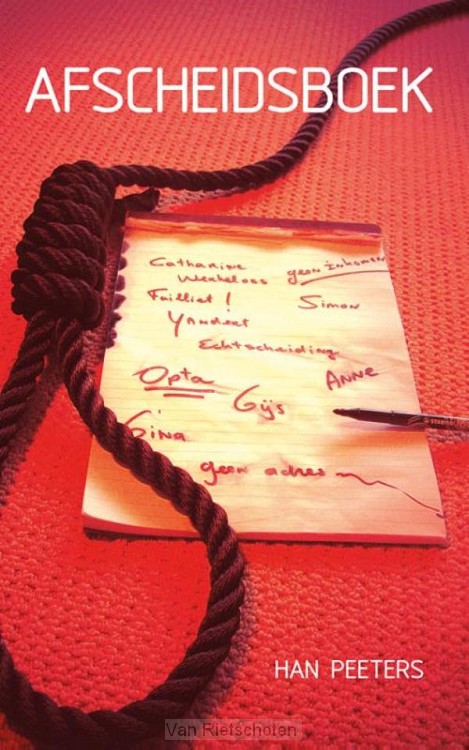 AFSCHEIDSBOEK
Catharine
Werkeloos geen inkomen
Failliet ! Simon
Echtscheiding
Opta Gijs ANNE
Gina
geen adres
HAN PEETERS
Van Rietschoten